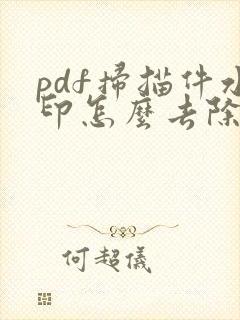 pdf掃描件水
印怎麼去除
何超儀